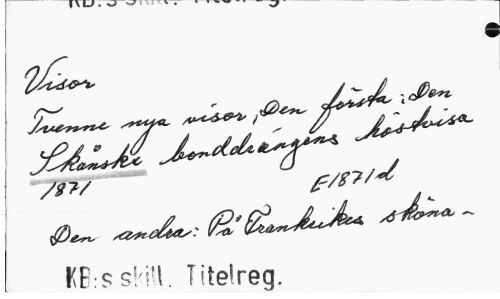 KB:s skill. Titelreg.
Visor
Tvenne nya visor, Den första: Den
Skånske bonddrängens höstvisa
1871
E1871d
Den andra: På Frankrikes sköna -
KB:s skill. Titelreg.